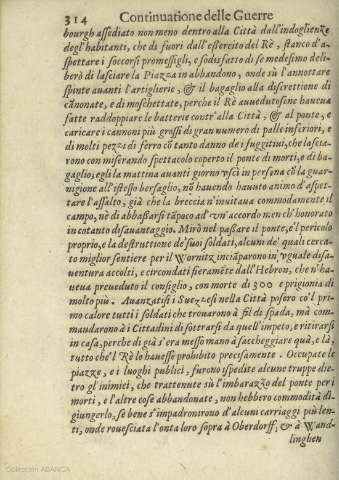 314 Continuatione delle Guerre
bourgh assediato non meno dentro alla Città dall'indoglienze
degl'habitanti, che di fuori dall'essercito del Rè, stanco d'a-
spettare i soccorsi promessigli, e sodisfatto di se medesimo deli-
berò di lasciare la Piazza in abbandono, onde sù l'annottare
spinte auanti l'artiglierie, & il bagaglio alla discrettione di
cānonate, e di moschettate, perche il Rè auuedutosene haueua
fatte raddoppiare le batterie contr'alla Città, & al ponte, e
caricare i cannoni più grossi di gran numero di palle inferiori, e
di molti pezzi di ferro cō tanto danno de i fuggitiui, che lascia-
rono con miserando spettacolo coperto il ponte di morti, e di ba-
gaglio; egli la mattina auanti giorno vscì in persona cō la guar-
nigione all'istesso bersaglio, nō hauendo hauuto animo d'aspet-
tare l'assalto, già che la breccia n'inuitaua commodamente il
campo, nè di abbassarsi tāpoco ad'vn'accordo men ch'honorato
in cotanto disauantaggio. Mirò nel passare il ponte, e'l pericolo
proprio, e la destruttione de'suoi soldati, alcuni de' quali cerca-
to miglior sentiere per il Wornitz inciāparono in'vguale disa-
uentura accolti, e circondati fieramēte dall'Hebron, che n'ha-
ueua preueduto il consiglio, con morte di 300 e prigionia di
molto più. Auanzatisi i Suezzesi nella Città posero co'l pri-
mo calore tutti i soldati che trouarono à fil di spada, mà com-
mandarono à i Cittadini di sottrarsi da quell'impeto, e ritirarsi
in casa, perche di già s'era messo mano à saccheggiare quà, e là,
tutto che'l Rè lo hauesse prohibito precisamente. Occupate le
piazze, e i luoghi publici, furono ispedite alcune truppe die-
tro gl'inimici, che trattenute sù l'imbarazzo del ponte per i
morti, e l'altre cose abbandonate, non hebbero commodità di
giungerlo, se bene s'impadronirono d'alcuni carriaggi più len-
ti, onde rouesciata l'onta loro sopra à Oberdorff, & à Wand-
linghen
Colección ABANCA